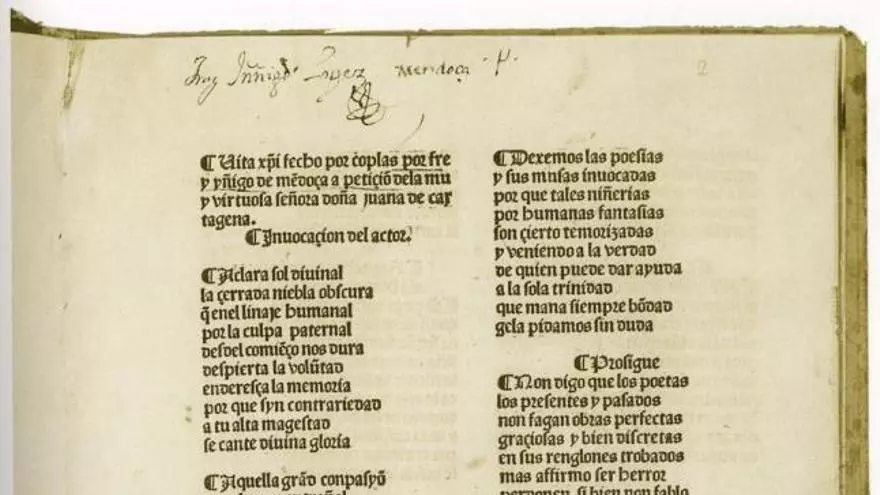 Fray Yñigo Lopez Mendoça
2
¶ Uita xp̃i fecho por c̃oplas por fre
y yñigo de mẽdoça a petiçiõ dela mu
y virtuosa señora doña juana de car
tagena.
¶ Inuocaçion del actor.
¶ Aclara sol diuinal
la çerrada niebla obscura
q̃ enel linaje humanal
por la culpa paternal
desdel comiẽço nos dura
despierta la volũtad
enderesça la memoria
por que syn contrariedad
a tu alta magestad
se cante diuina gloria
¶ Aquella grãd conpasyõ
¶ Dexemos las poesias
y sus musas inuocadas
por que tales niñerias
por humanas fantasias
son çierto temorizadas
y veniendo a la verdad
de quien puede dar ayuda
a la sola trinidad
que mana siempre bõdad
gela pidamos sin duda
¶ Prosigue
¶ Non digo que los poetas
los presentes y pasados
non fagan obras perfectas
graçiosas y bien discretas
en sus renglones trobados
mas affirmo ser herror
perdonen si bien non fablo